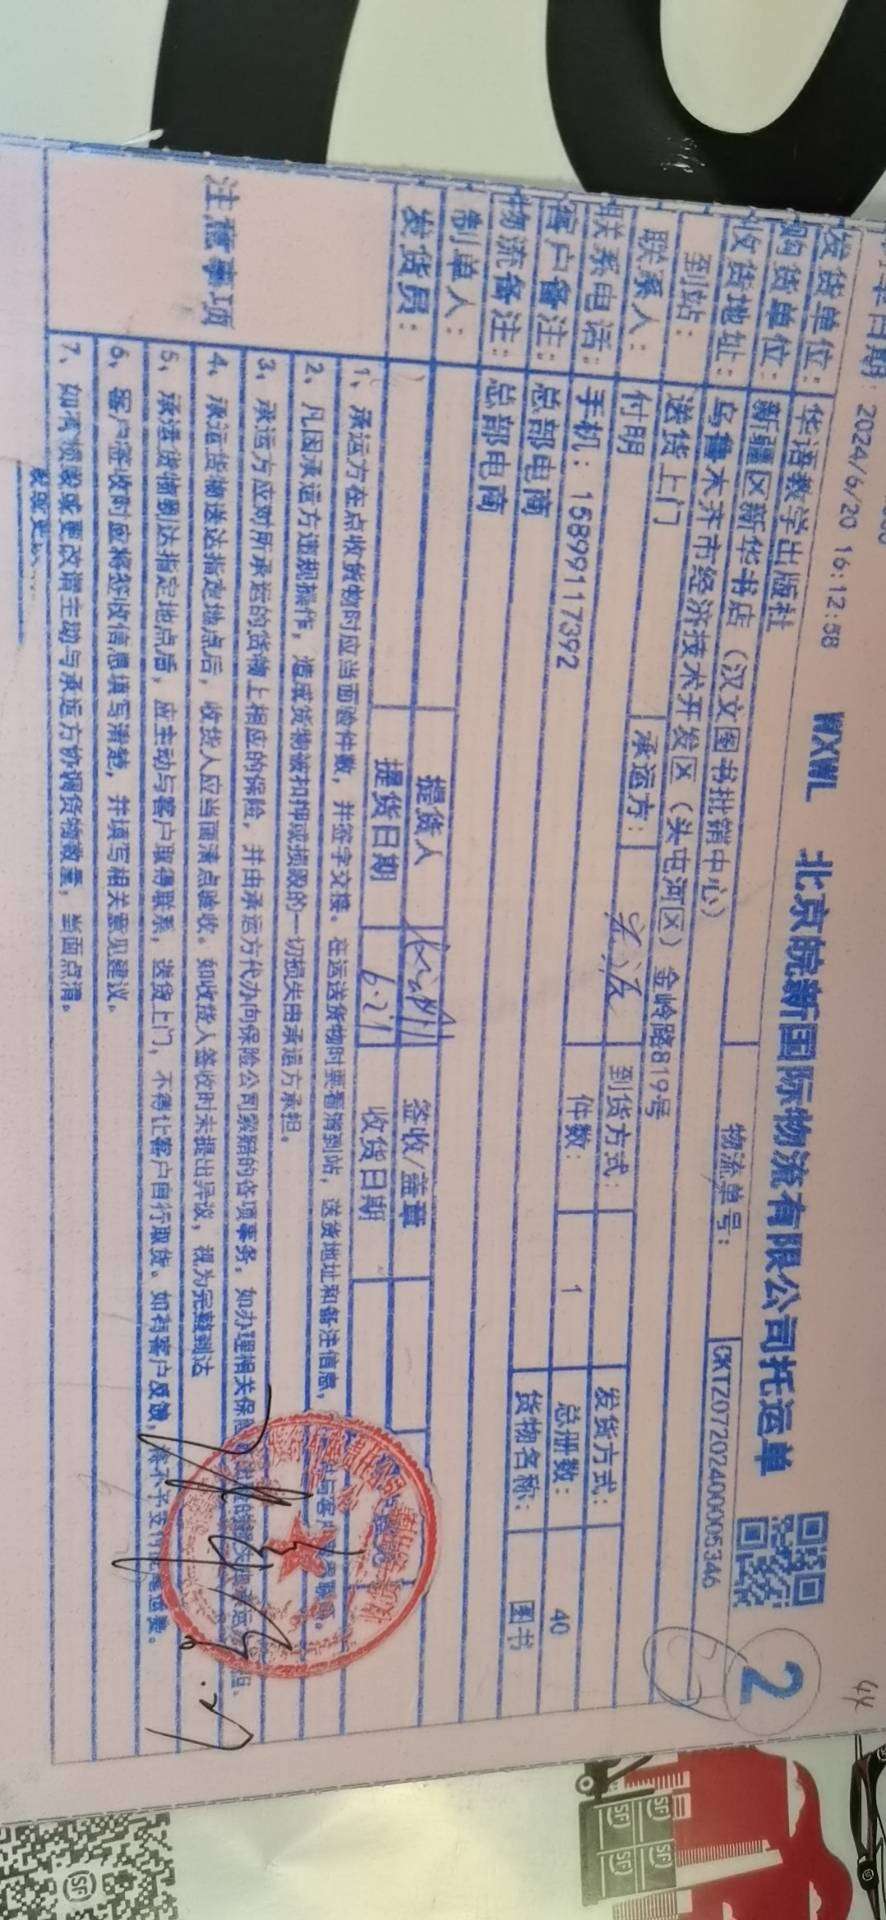 日期: 2024/6/20 16:12:58 WXWL 北京皖新国际物流有限公司托运单 2
发货单位: 华语教学出版社 物流单号: CKTZ0720240005346
购货单位: 新疆区新华书店（汉文图书批销中心）
收货地址: 乌鲁木齐市经济技术开发区（头屯河区）金岭路819号
到站: 送货上门
联系人: 付明 承运方: 到货方式: 发货方式:
联系电话: 手机: 15899117392 件数: 1 总册数: 40
客户备注: 总部电商 货物名称: 图书
物流备注: 总部电商
制单人: 提货人 签收/盖章
发货员: 提货日期 6.21 收货日期
注意事项
1、承运方在点收货物时应当面验件数，并签字交接。在运送货物时要看清到站，送货地址和备注信息，
2、凡因承运方违规操作，造成货物被扣押或损毁的一切损失由承运方承担。
3、承运方应对所承运的货物上相应的保险，并由承运方代办向保险公司索赔的各项事务，如办理相关保险
4、承运货物送达指定地点后，收货人应当面清点验收。如收货人签收时未提出异议，视为完整到达
5、承运货物到达指定地点后，应主动与客户取得联系，送货上门，不得让客户自行取货。如有客户反馈，
6、客户签收时应将签收信息填写清楚，并填写相关意见建议。
7、如有损毁或更改请主动与承运方协调货物数量，当面点清。
SF
SF
SF
SF
SF